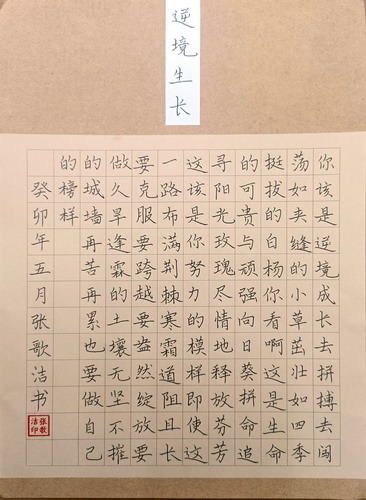 逆境生长
你该是逆境成长去拼搏去闯
荡如夹缝的小草茁壮如四季
挺拔的白杨你看啊这是生命
的可贵与顽强向日葵拼命追
寻阳光玫瑰尽情地释放芬芳
这该是你努力的模样即使这
一路布满荆棘寒霜道阻且长
要克服要跨越要盎然绽放要
做久旱逢霖的土壤无坚不摧
的城墙再苦再累也要做自己
的榜样
癸卯年五月张歌洁书
张歌
洁印